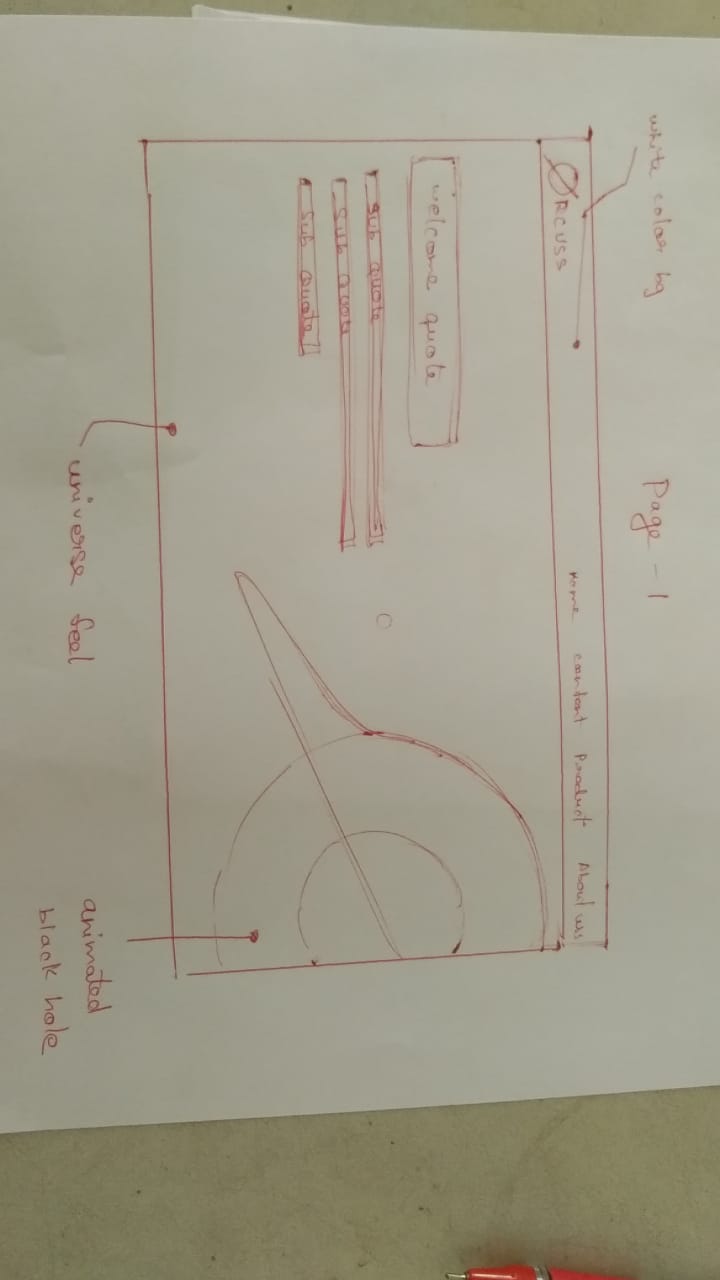 Page - 1
white colour bg
ØRCUSS
Home contant Product About us
welcome quote
Sub quote
Sub quote
Sub quote
universe feel
animated
black hole